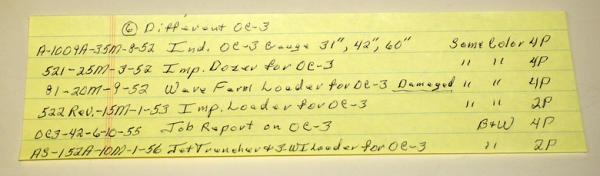 ⑥ Different OC-3
A-1009A-35M-8-52 Ind. OC-3 Gauge 31", 42", 60" Some Color 4P
521-25M-3-52 Imp. Dozer for OC-3 " " 4P
81-20M-9-52 Ware Farm Loader for OC-3 Damaged " " 4P
522 Rev.-15M-1-53 Imp. Loader for OC-3 " " 2P
OC3-42-6-10-55 Job Report on OC-3 B+W 4P
AS-152A-10M-1-56 Jet Trencher & 3-WI Loader for OC-3 " 2P